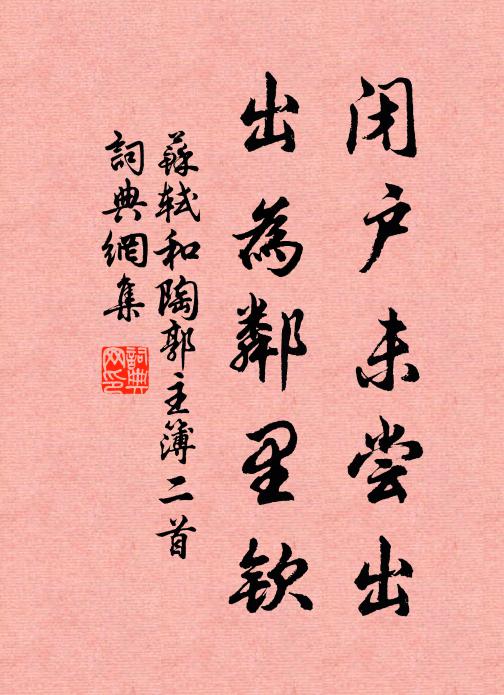 闭户未尝出
出為鄰里欽
蘇軾和陶郭主簿二首
詞典網集
詞典網印